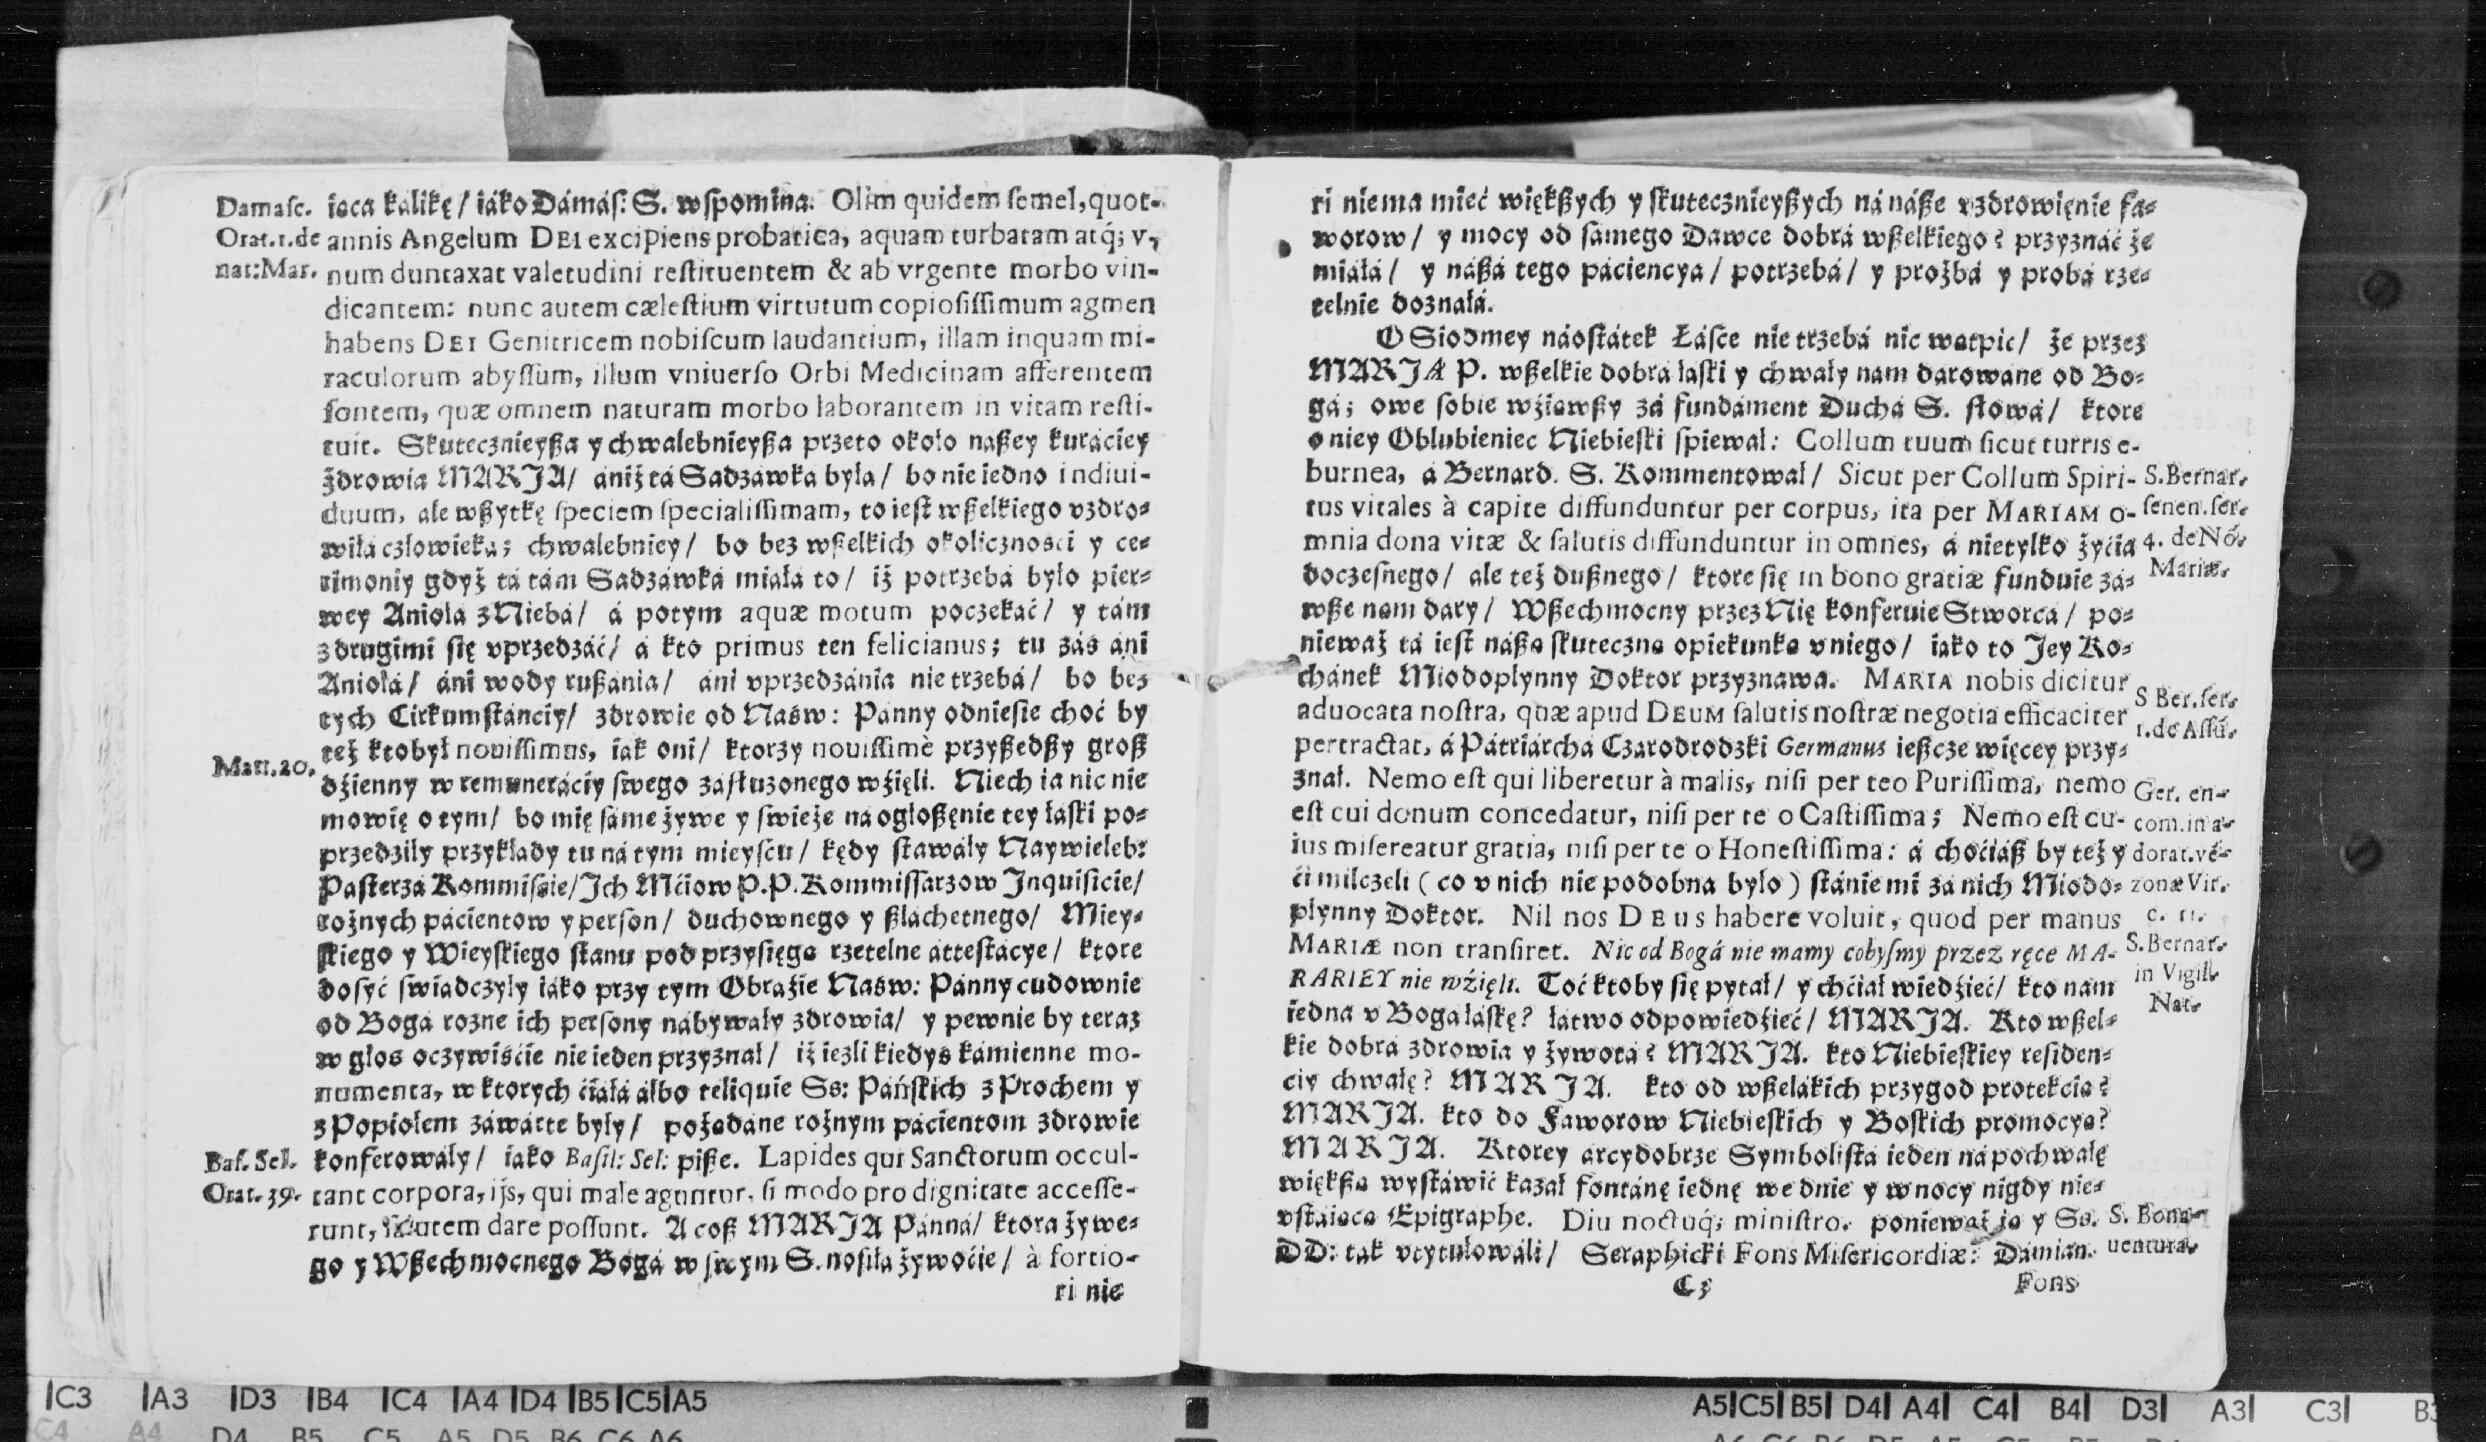 Damasc.
Orat.1.de
nat:Mar.
iąca kálikę/ iáko Dámás: S. wspomina. Olim quidem semel, quot-
annis Angelum DEI excipiens probatica, aquam turbatam atq́; v,
num duntaxat valetudini restituentem & ab vrgente morbo vin-
dicantem: nunc autem cælestium virtutum copiosissimum agmen
habens DEI Genitricem nobiscum laudantium, illam inquam mi-
raculorum abyssum, illum vniuerso Orbi Medicinam afferentem
fontem, quæ omnem naturam morbo laborantem in vitam resti-
tuit. Skutecznieyßa y chwalebnieyßa przeto około nászey kuráciey
żdrowia MARJA/ ániż tá Sadzawka była/ bo nie iedno indiui-
duum, ale wßytkę speciem specialissimam, to iest wßelkiego vzdro-
wiłá człowieká; chwalebniey/ bo bez wßelkich okolicznosci y ce-
rimoniy gdyż tá tám Sadzáwká miáłá to/ iż potrzebá było pier-
wey Anioła z Niebá/ á potym aquæ motum poczekáć/ y tám
z drugimi się vprzedzáć/ á kto primus ten felicianus; tu zás áni
Aniołá/ áni wody rußánia/ áni vprzedzánia nie trzebá/ bo bez
tych Cirkumstánciy/ zdrowie od Naśw: Pánny odniesie choć by
też kto był nouissimus, iák oni/ ktorzy nouissimè przyßedßy groß
Matt.20.
dźienny w remuneráciy swego zásłuzonego wźięli. Niech ia nic nie
mowię o tym/ bo mię sáme żywe y swieże ná ogłoßęnie tey łáski po-
przedziły przykłády tu ná tym mieyscu/ kędy stawáły Naywieleb:
Pasterzá Kommisąie/ Jch Mćiow P.P. Kommissarzow Jnquisicie/
rożnych páćientow y person/ duchownego y ßláchetnego/ Miey-
skiego y Wieyskiego stanu pod przysięgą rzetelne attestácye/ ktore
dosyć swiádczyły iáko przy tym Obráźie Naśw: Pánny cudownie
od Bogá rozne ich persony nábywáły zdrowia/ y pewnie by teraz
w głos oczywiśćie nie ieden przyznał/ iż iezli kiedyś kámienne mo-
numenta, w ktorych ćiáłá álbo reliquie Ss: Páńskich z Prochem y
z Popiołem záwárte były/ pożądáne rożnym pácientom zdrowie
Bas. Sel.
Orat. 39.
konferowáły/ iáko Basil: Sel: piße. Lapides qui Sanctorum occul-
tant corpora, ijs, qui male aguntur, si modo pro dignitate accesse-
runt, salutem dare possunt. A coß MARJA Pánná/ ktora żywe-
go y Wßechmocnego Bogá w swym S. nosiłá żywoćie/ à fortio-
ri nie
ri niema mieć większych y skutecznieyßych ná náße vzdrowięnie fa-
worow/ y mocy od sámego Dawce dobrá wßelkiego? przyznáć że
miáłá/ y náßá tego páciencya/ potrzebá/ y proźbá y probá rze-
telnie doznáłá.
O Siodmey náostátek Łásce nie trzebá nic wątpic/ że przez
MARJĄ P. wßelkie dobrá łáski y chwały nam dárowáne od Bo-
gá; owe sobie wźiąwßy zá fundáment Duchá S. słowá/ ktore
o niey Oblubieniec Niebieski spiewał: Collum tuum sicut turris e-
burnea, á Bernard. S. Kommentował/ Sicut per Collum Spiri-
tus vitales à capite diffunduntur per corpus, ita per MARIAM o-
mnia dona vitæ & salutis diffunduntur in omnes, á nietylko żyćia
doczesnego/ ale też dußnego/ ktore się in bono gratiæ funduie zá-
wße nam dáry/ Wßechmocny przez Nię konferuie Stworcá/ po-
S. Bernar.
senen. ser.
4. de Nó.
Mariæ.
niewáż tá iest náßą skuteczną opiekunką v niego/ iáko to Jey Ko-
chánek Miodopłynny Doktor przyznawa. MARIA nobis dicitur
aduocata nostra, quæ apud DEUM salutis nostræ negotia efficaciter
S Ber. ser.
1. de Assú.
pertractat, á Pátriárchá Czarodrodzki Germanus ießcze więcey przy-
znał. Nemo est qui liberetur à malis, nisi per te o Purissima, nemo
est cui donum concedatur, nisi per te o Castissima; Nemo est cu-
ius misereatur gratia, nisi per te o Honestissima: á choćiáß by też y
Ger. en-
com. in a-
dorat. vé-
zonæ Vir.
c. 11.
ći milczeli (co v nich nie podobna było) stánie mi zá nich Miodo-
płynny Doktor. Nil nos DEUS habere voluit, quod per manus
MARIÆ non transiret. Nic od Bogá nie mamy cobysmy przez ręce MA-
RARIEY nie wźięli. Toć ktoby się pytał/ y chćiał wiedźieć/ kto nam
S. Bernar.
in Vigil.
Nat.
iedna v Bogá łáskę? łátwo odpowiedźieć/ MARJA. Kto wßel-
kie dobrá zdrowia y żywotá? MARJA. kto Niebieskiey residen-
ciy chwałę? MARJA. kto od wßelákich przygod protekcią?
MARJA. kto do Faworow Niebieskich y Boskich promocyą?
MARJA. Ktorey arcydobrze Symbolistá ieden ná pochwałę
większą wystáwić kazał fontánę iednę we dnie y w nocy nigdy nie-
vstáiącą Epigraphe. Diu noctuq́; ministro. poniewáż ią y Ss.
DD: ták vtytułowáli/ Seraphicki Fons Misericordiæ: Dámián.
S. Bona-
uentura.
C3
Fons
IC3 IA3 ID3 IB4 IC4 IA4 ID4 IB5 IC5 IA5
A5I C5I B5I D4I A4I C4I B4I D3I A3I C3I B3
C4 A4 D4 B5 C5 A5 D5 B6 C6 A6